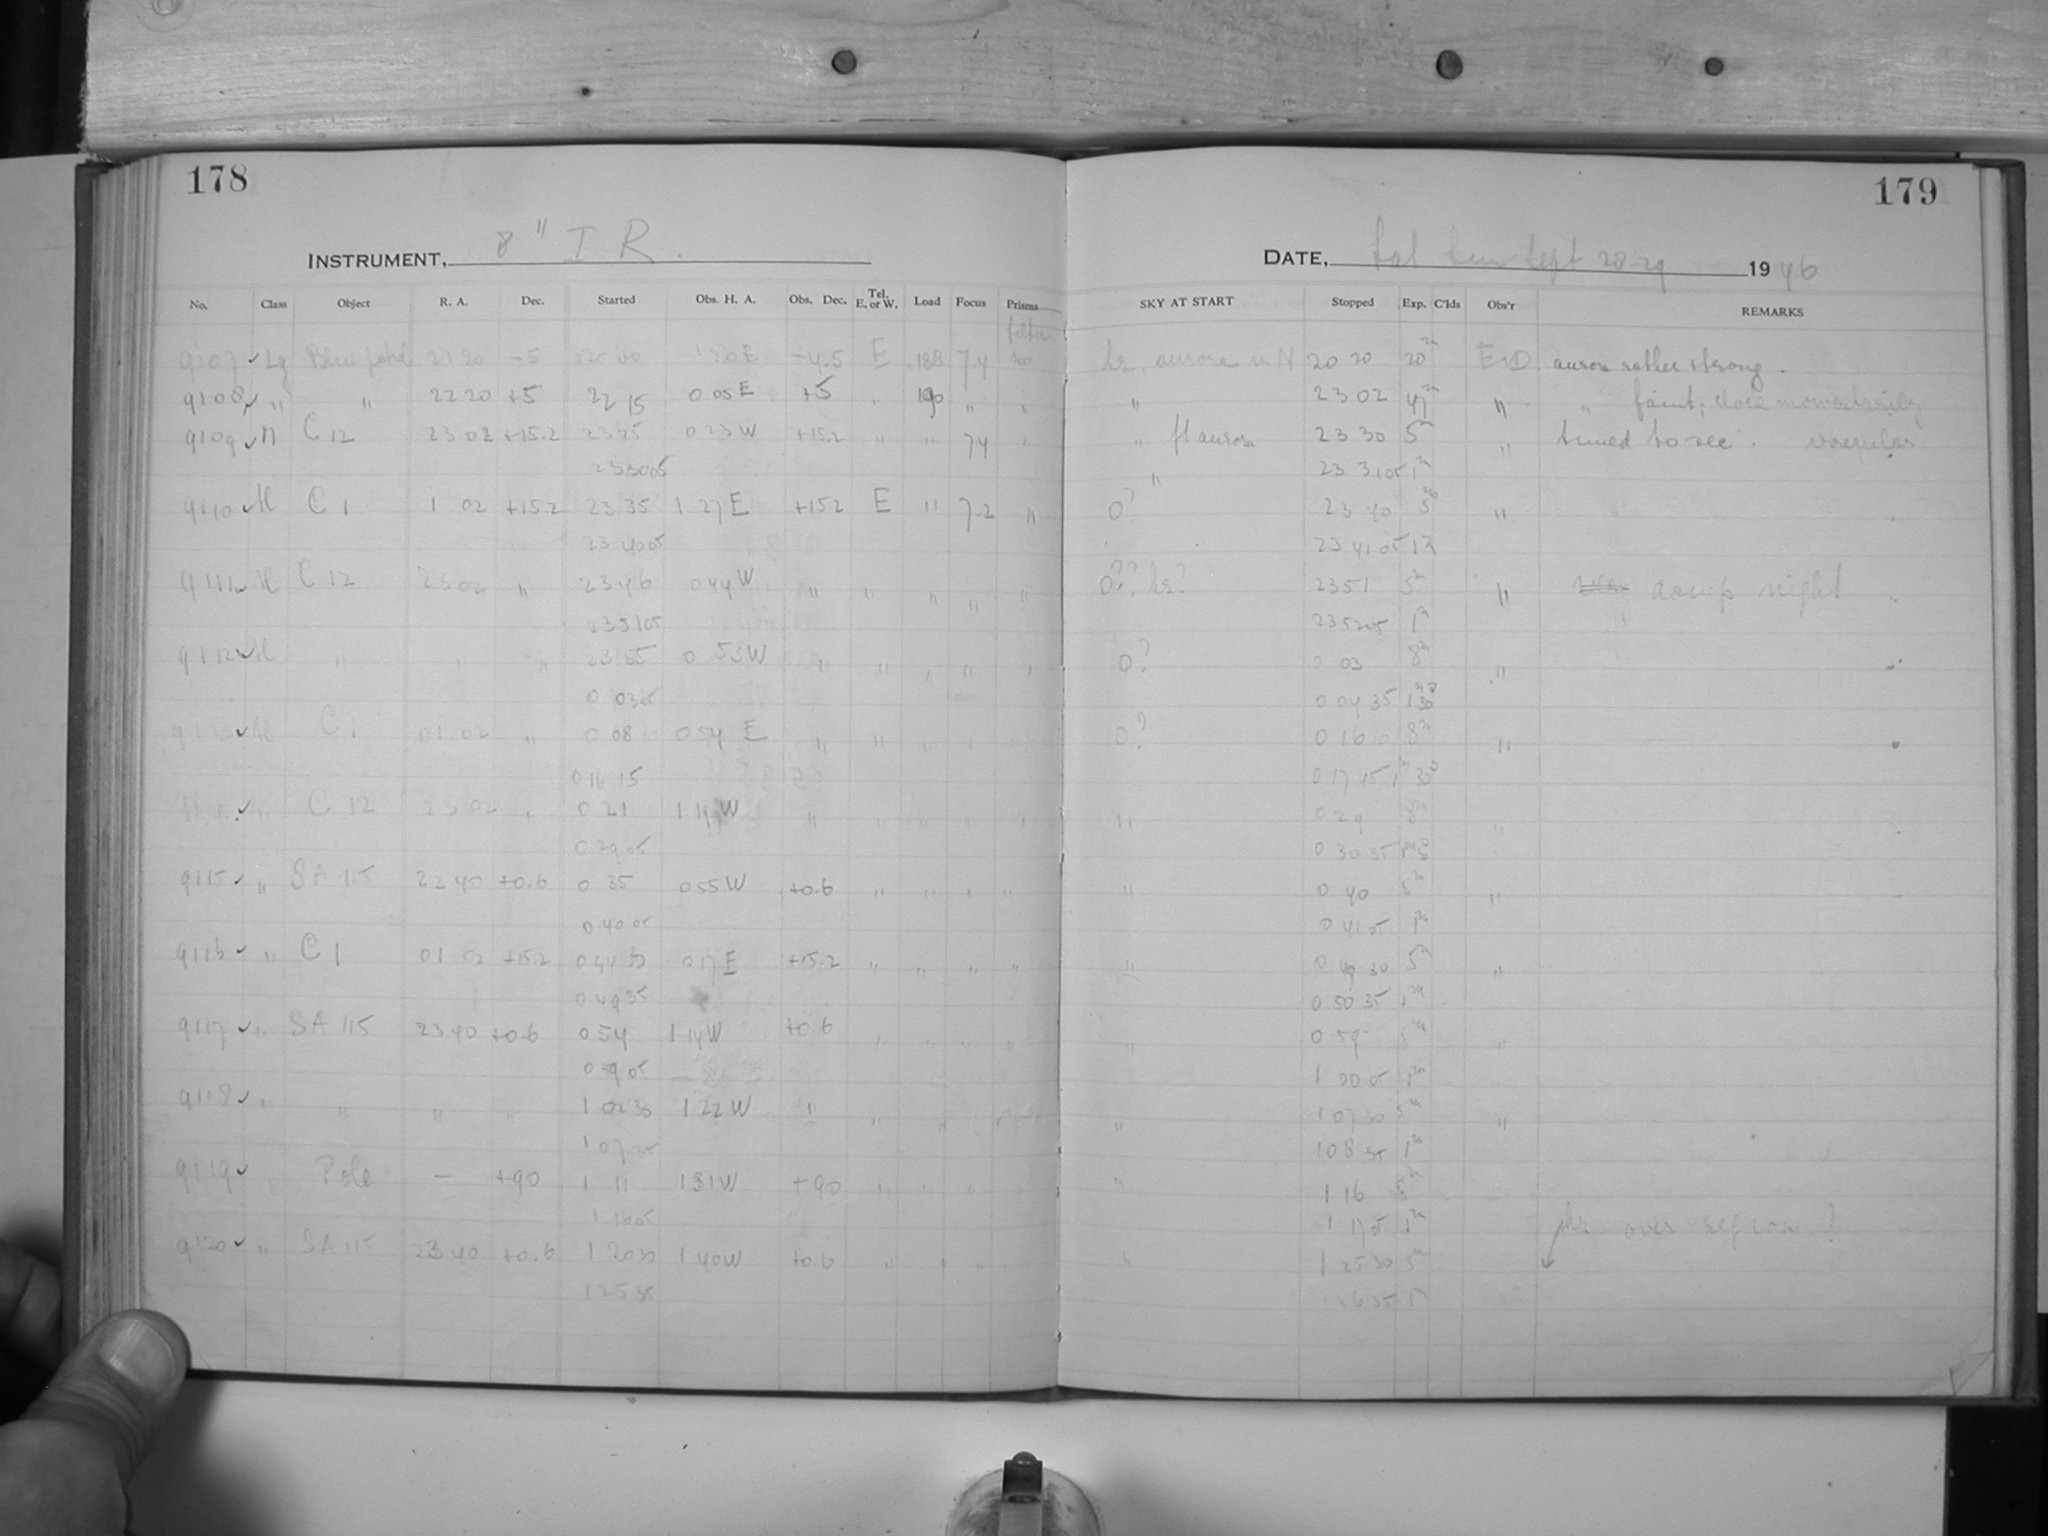 178
INSTRUMENT, 8" I R.
No. Class Object R. A. Dec. Started Obs. H. A. Obs. Dec. Tel. E. or W. Load Focus Prisms
filter
9107 ✓ Lg 2120 -5 1 20 E -4.5 E 188 7.4
9108 ✓ " " 22 20 +5 22 15 0 05 E +5 " 190 " "
9109 ✓ C 12 23 02 +15.2 23 25 0 23 W +15.2 " " 74 "
23 30 05
9110 ✓ C 1 1 02 +15.2 23 35 1 27 E +15.2 E " 7.2 "
23 40 05
9111 C 12 23 02 " 23 46 0 44 W " " " " "
23 51 05
9112 ✓ " " " 23 55 0 53 W " " " " "
0 03 05
✓ C 1 01 02 " 0 08 0 54 E " " " " "
0 16 15
✓ " C 12 23 02 " 0 21 1 19 W " " " " "
0 29 05
9115 ✓ " SA 115 22 40 +0.6 0 35 0 55 W +0.6 " " " "
0 40 05
9116 ✓ " C 1 01 02 +15.2 0 44 30 0 17 E +15.2 " " " "
0 49 35
9117 ✓ " SA 115 23 40 +0.6 0 54 1 14 W +0.6 " " " "
0 59 05
9118 ✓ " " " " 1 02 30 1 22 W " " " "
1 07 35
9119 ✓ " Pole — +90 1 11 1 31 W +90 " " "
1 16 05
9120 ✓ " SA 115 23 40 +0.6 1 20 30 1 40 W +0.6 " " "
1 25 35
179
DATE, Sept 28-29 1946
SKY AT START Stopped Exp. C'lds Obs'r REMARKS
hz, aurora in N 20 20 20m aurora rather strong.
" 23 02 47m " " faint; clock momentarily
" fl aurora 23 30 5m " turned to sec. irregular
" 23 31 05 1m
0? 23 40 5m "
23 41 05 1m
0?? hz? 23 51 5m " damp night
23 52 05 1m
0? 0 03 8m "
0 04 35 1m 30
0? 0 16 10 8m "
0 17 45 1m 30
" 0 29 8m "
0 30 35 1m 30
" 0 40 5m "
0 41 05 1m
" 0 49 30 5m "
0 50 35 1m
" 0 59 5m "
1 00 05 1m
" 1 07 30 5m "
1 08 35 1m
" 1 16 5m
1 17 05 1m hz over region?
" 1 25 30 5m
1 26 35 1m